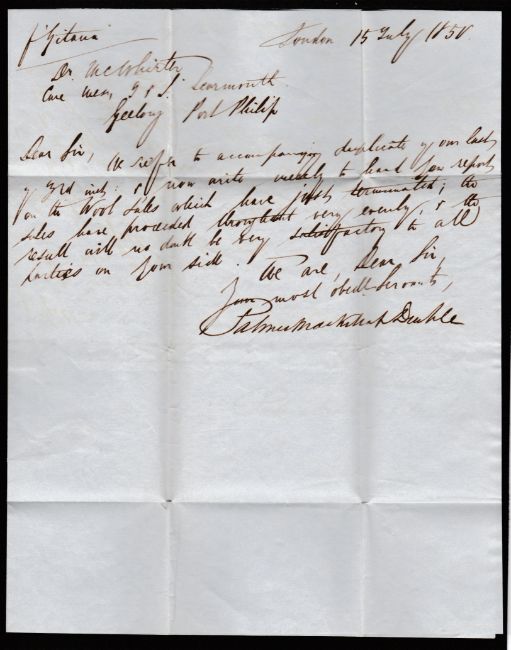 London 15 July 1850
Dr. McWhirter
Care Messrs J & S Learmonth
Geelong Port Philip
Dear Sir, We refer to accompanying duplicate of our last
of 3rd inst: & now write merely to hand you report
on the Wool Sales which have just terminated; the
sales have proceeded throughout very evenly, & the
result will no doubt be very satisfactory to all
parties on your side.
We are, Dear Sir,
Your most obedt Servants,
Palmer Mackillop Dent &